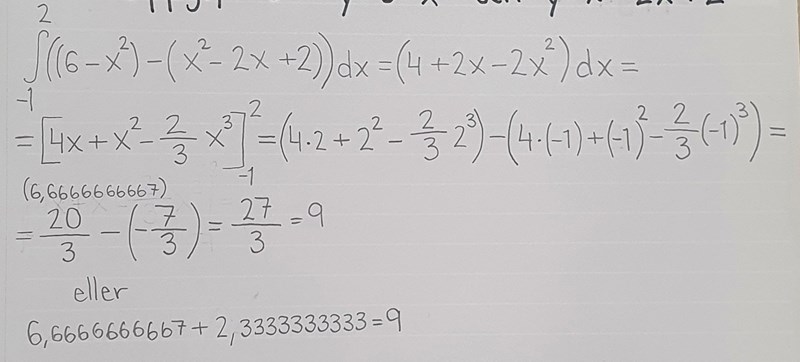 2
∫((6-x²)-(x²-2x+2))dx=(4+2x-2x²)dx=
-1
=[4x+x²-2/3 x³]²₋₁=(4·2+2²-2/3 2³)-(4·(-1)+(-1)²-2/3(-1)³)=
(6,6666666667)
=20/3-(-7/3)=27/3=9
eller
6,6666666667+2,3333333333=9